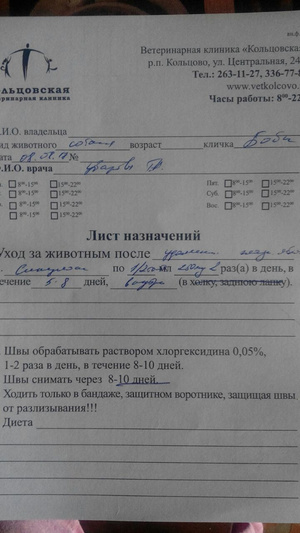 Ветеринарная клиника «Кольцовска
р.п. Кольцово, ул. Центральная, 24
Тел.: 263-11-27, 336-77-8
www.vetkolcovo.
Часы работы: 8ºº-22
ЛЬЦОВСКАЯ
теринарная клиника
.И.О. владельца
ид животного собака возраст кличка Боби
ата №
.И.О. врача
8ºº-15ºº 15ºº-22ºº Пят. 8ºº-15ºº 15ºº-22ºº
8ºº-15ºº 15ºº-22ºº Суб. 8ºº-15ºº 15ºº-22ºº
8ºº-15ºº 15ºº-22ºº Вос. 8ºº-15ºº 15ºº-22ºº
Лист назначений
Уход за животным после
по раз(а) в день, в
ечение 5-8 дней, (в холку, заднюю лапку).
Швы обрабатывать раствором хлоргексидина 0,05%,
1-2 раза в день, в течение 8-10 дней.
Швы снимать через 8-10 дней.
Ходить только в бандаже, защитном воротнике, защищая швы
от разлизывания!!!
Диета